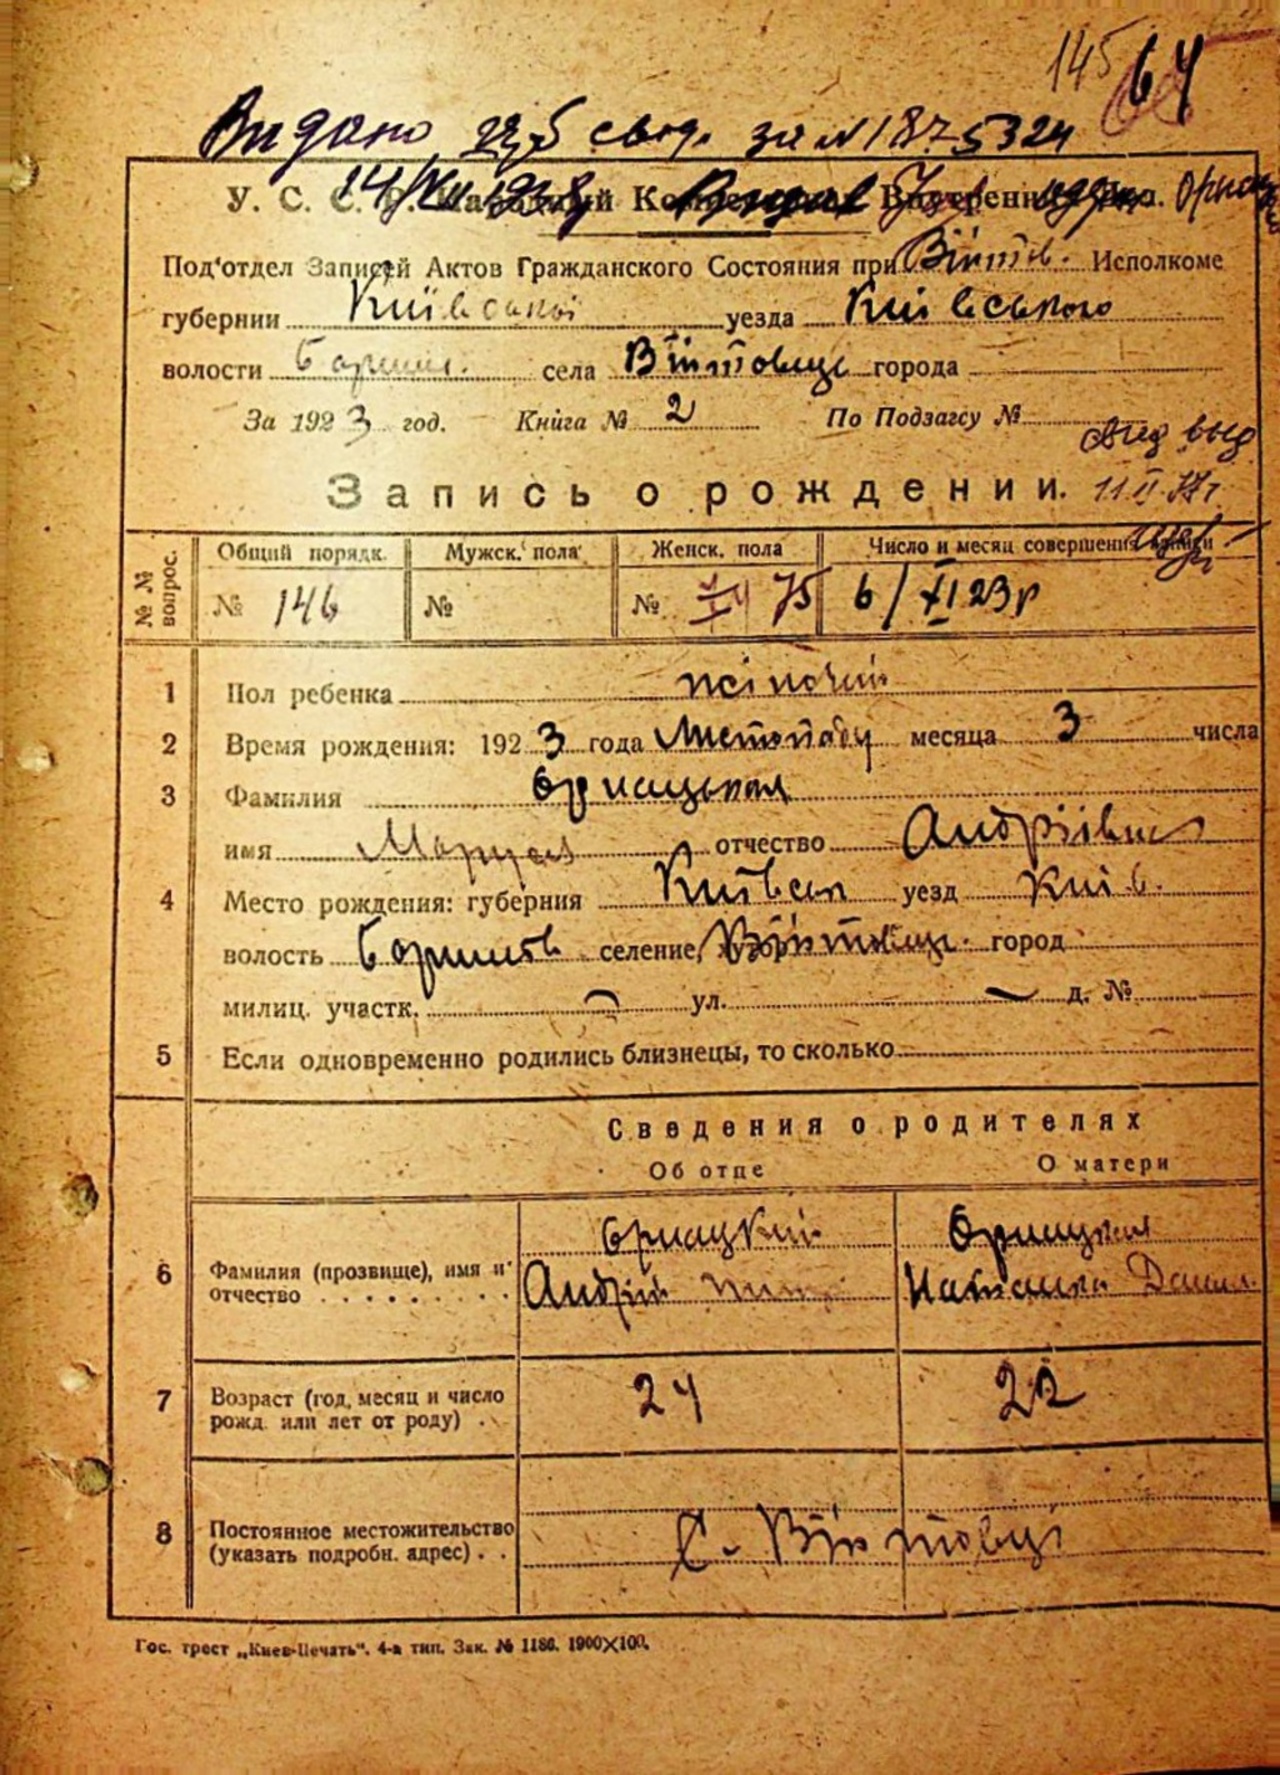 145 64
Видано свид. за № 1875324
У. С. С. Р. Народный Внутренних Дел.
Под'отдел Записей Актов Гражданского Состояния при Війтов. Исполкоме
губернии Київської уезда Київського
волости села Війтовці города
За 1923 год. Книга № 2 По Подзагсу №
Запись о рождении.
№№ вопрос. Общий порядк. Мужск. пола Женск. пола Число и месяц совершения записи
№ 146 № № 75 6/XI 23 р
1 Пол ребенка жіночий
2 Время рождения: 1923 года Листопаду месяца 3 числа
3 Фамилия
имя Маруся отчество Андріївна
4 Место рождения: губерния Київськ уезд Київ.
волость селение, хутор Війтовці город
милиц. участк. — ул. — д. №
5 Если одновременно родились близнецы, то сколько
Сведения о родителях
Об отце О матери
6 Фамилия (прозвище), имя и отчество Андрій Наталка Данил.
7 Возраст (год, месяц и число рожд. или лет от роду) 24 22
8 Постоянное местожительство (указать подробн. адрес) С. Війтовці
Гос. трест „Киев-Печать". 4-я тип. Зак. № 1186. 1900×100.